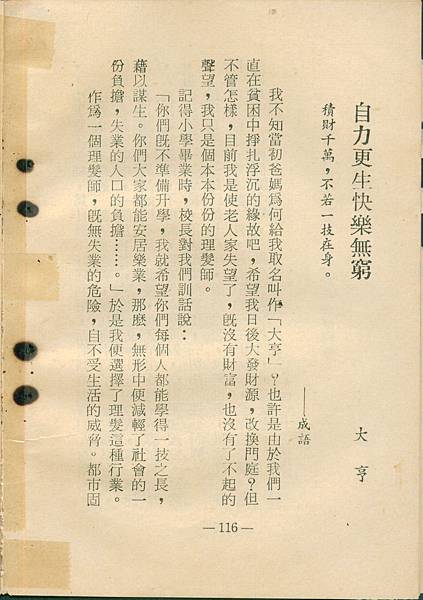 自力更生快樂無窮
大亨
積財千萬，不若一技在身。
——成語
我不知當初爸媽爲何給我取名叫作「大亨」？也許是由於我們一
直在貧困中掙扎浮沉的緣故吧，希望我日後大發財源，改換門庭？但
不管怎樣，目前我是使老人家失望了，旣沒有財富，也沒有了不起的
聲望，我只是個本本份份的理髮師。
記得小學畢業時，校長對我們訓話說：
「你們旣不準備升學，我就希望你們每個人都能學得一技之長，
藉以謀生。你們大家都能安居樂業，那麽，無形中便減輕了社會的一
份負擔，失業的人口的負擔……。」於是我便選擇了理髮這種行業。
作爲一個理髮師，旣無失業的危險，自不受生活的威脅。都市固
—116—